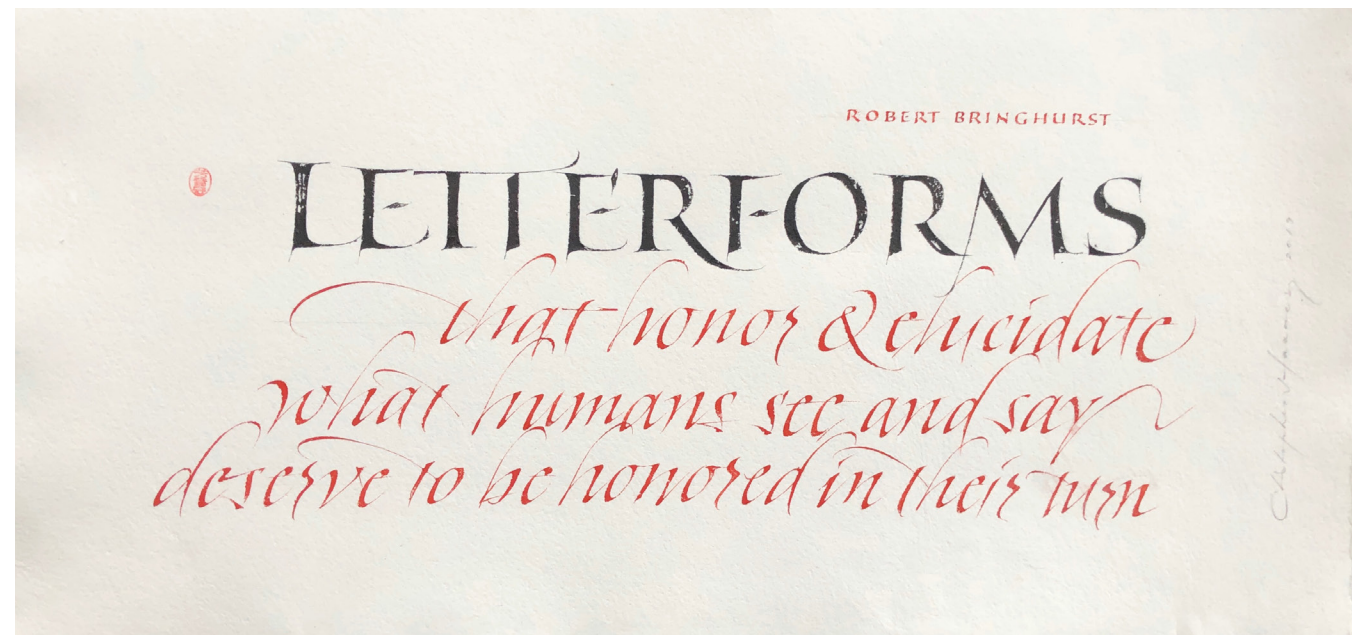 ROBERT BRINGHURST
LETTERFORMS
that honor & elucidate
what humans see and say
deserve to be honored in their turn